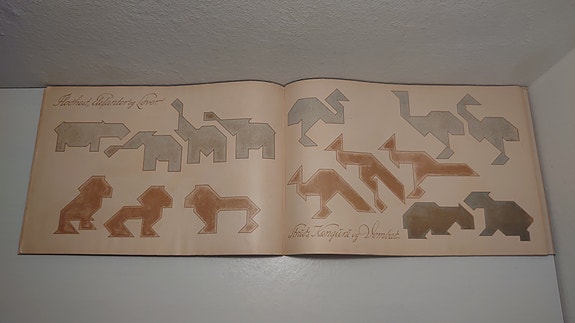 Flodhest, Elefanter og Løver
Struds Kænguru og Wombat